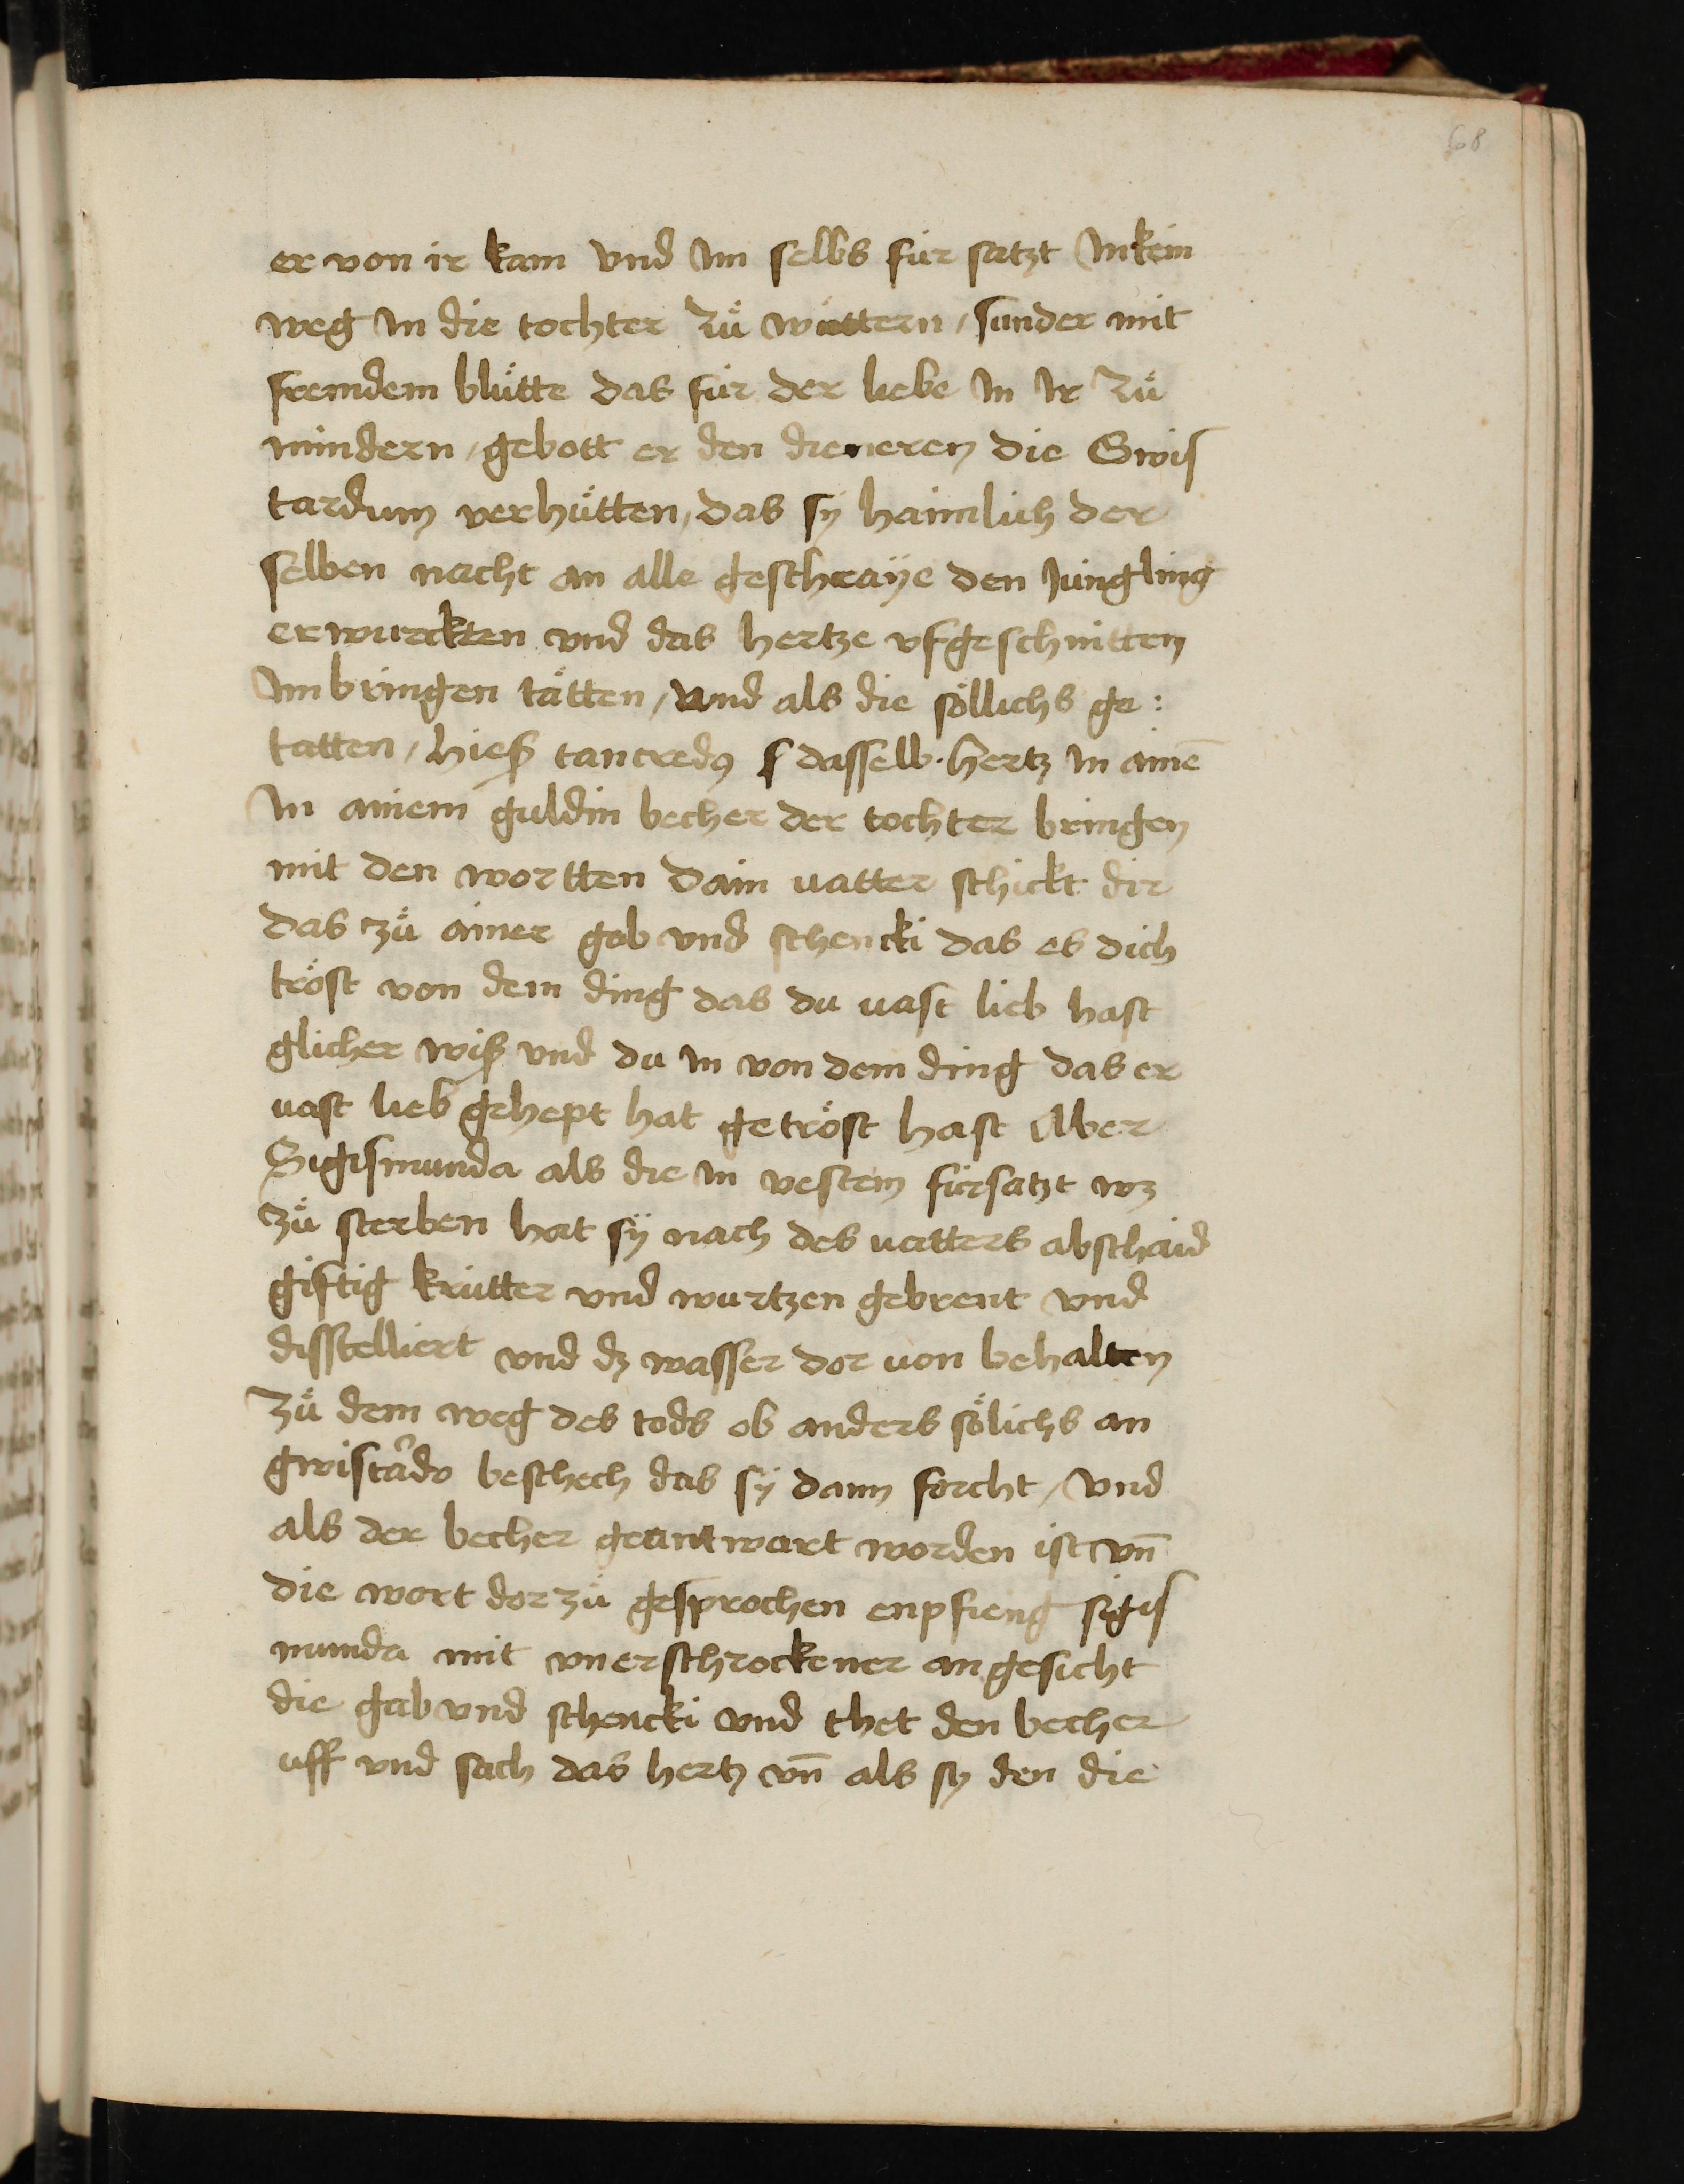 68
er von ir kam vnd Im selbs für satzt Inkein
weg In die tochter zů wüttern / sunder mit
fremdem blůtte das für der liebe In Ir zů
mindern / gebott er den dieneren die Gwis
tardum verhůtten / das sÿ haimlich der
selben nacht an alle geschraÿe den Jüngling
erwurckten vnd das hertze vfgeschnitten
Im bringen tätten / vnd als die söllichs ge :
tatten / hieß tancredꝰ dasselb hertz In ainē
In ainem guldin becher der tochter bringen
mit den wortten Dain vatter schickt dir
das zů ainer gab vnd schencki das es dich
tröst von dem ding das du vast lieb hast
glicher wiß vnd du In von dem ding das er
vast lieb gehept hat getröst hast Aber
Sigismunda als die In vestem fürsatzt wz
zů sterben hat sÿ nach des vatters abschaid
giftig krütter vnd wurtzen gebrent vnd
disstelliert vnd dz wasser dor von behalten
zů dem weg des tods ob anders sölichs an
gwistādo beschech das sÿ dann forcht / Vnd
als der becher geantwart worden ist vn̄
die wort dorzů gesprochen enpfieng sigis
munda mit vnerschrockener angesicht
die gab vnd schencki vnd thet den becher
uff vnd sach das hertz vn̄ als sy den die